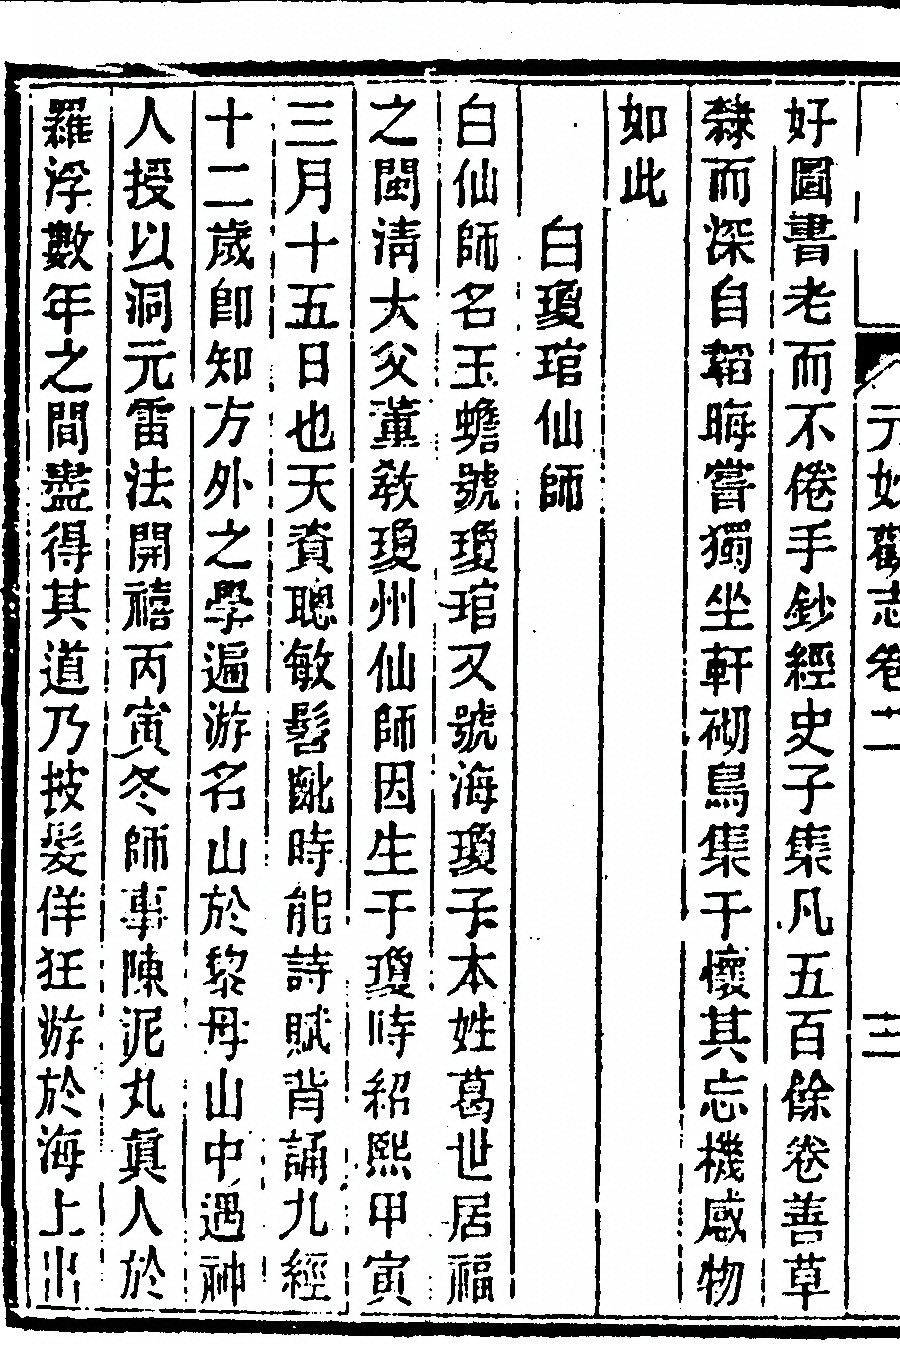 元妙觀志卷二 三
好圖書老而不倦手鈔經史子集凡五百餘卷善草
隸而深自韜晦嘗獨坐軒砌鳥集于懷其忘機感物
如此
白瓊琯仙師
白仙師名玉蟾號瓊琯又號海瓊子本姓葛世居福
之閩淸大父董敎瓊州仙師因生于瓊時紹熙甲寅
三月十五日也天資聰敏髫齔時能詩賦背誦九經
十二歲卽知方外之學遍游名山於黎母山中遇神
人授以洞元雷法開禧丙寅冬師事陳泥丸眞人於
羅浮數年之間盡得其道乃披髮佯狂游於海上出